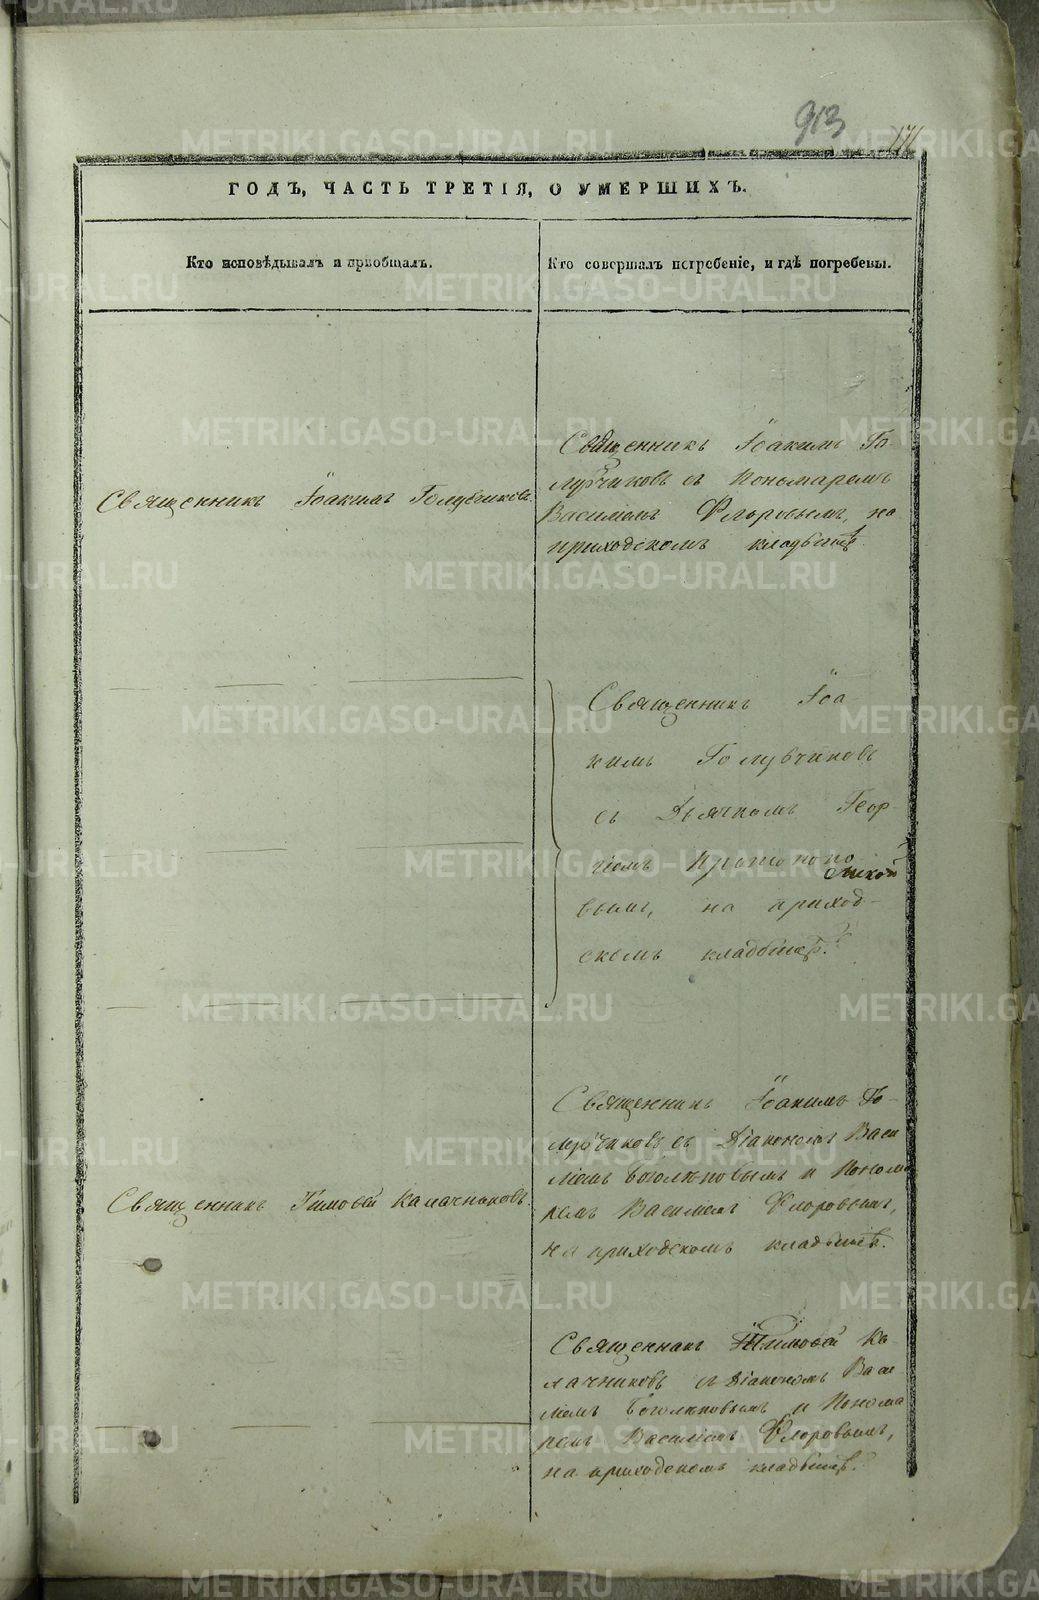 913
171
ГОДЪ, ЧАСТЬ ТРЕТІЯ, О УМЕРШИХЪ.
Кто исповѣдывалъ и пріобщалъ.
Кто совершалъ погребеніе, и гдѣ погребены.
Священникъ Іоакимъ Голубчиковъ.
Священникъ Іоакимъ Го-
лубчиковъ съ Пономаремъ
Василіемъ Флоровымъ, на
приходскомъ кладбищѣ.
Священникъ Іоа
кимъ Голубчиковъ
съ Дьячкомъ Геор-
гіемъ Протопопо
вымъ, на приход-
скомъ кладбищѣ.
Священникъ Тимофей Калачниковъ.
Священникъ Іоакимъ Го-
лубчиковъ съ Діакономъ Васи
ліемъ Боголюповымъ и Понома
ремъ Василіемъ Флоровымъ,
на приходскомъ кладбищѣ.
Священникъ Тимофей Ка-
лачниковъ съ Діакономъ Васи
ліемъ Боголюповымъ и Понома
ремъ Василіемъ Флоровымъ,
на приходскомъ кладбищѣ.
METRIKI.GASO-URAL.RU